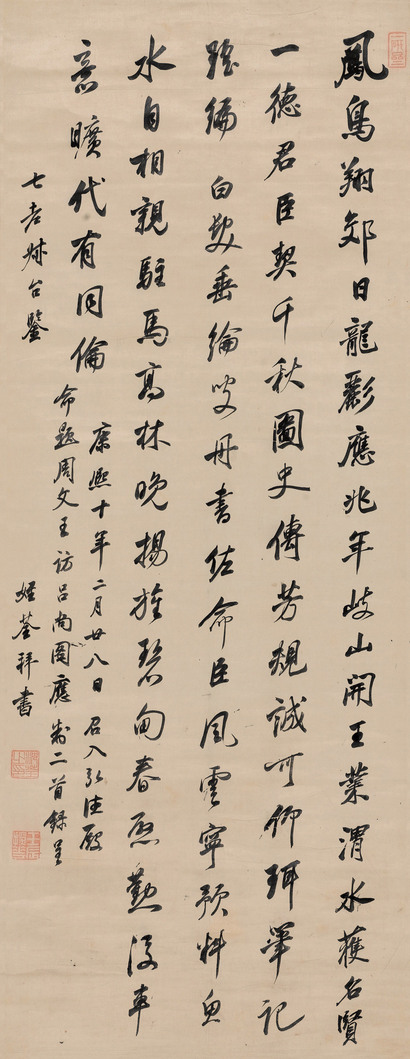 鳳鳥翔郊日龍彲應兆年岐山開王業渭水獲名賢
一德君臣契千秋圖史傳芳規誠可仰珥筆記
瑤編 白髮垂綸叟丹書佐命臣風雲寧預料魚
水自相親駐馬高林晚揚旌碧甸春殷勤後車
意曠代有同倫
康熙十年二月廿八日 召入弘德殿
命題周文王訪呂尚圖應制二首錄呈
七老叔台鑒
姪荃拜書